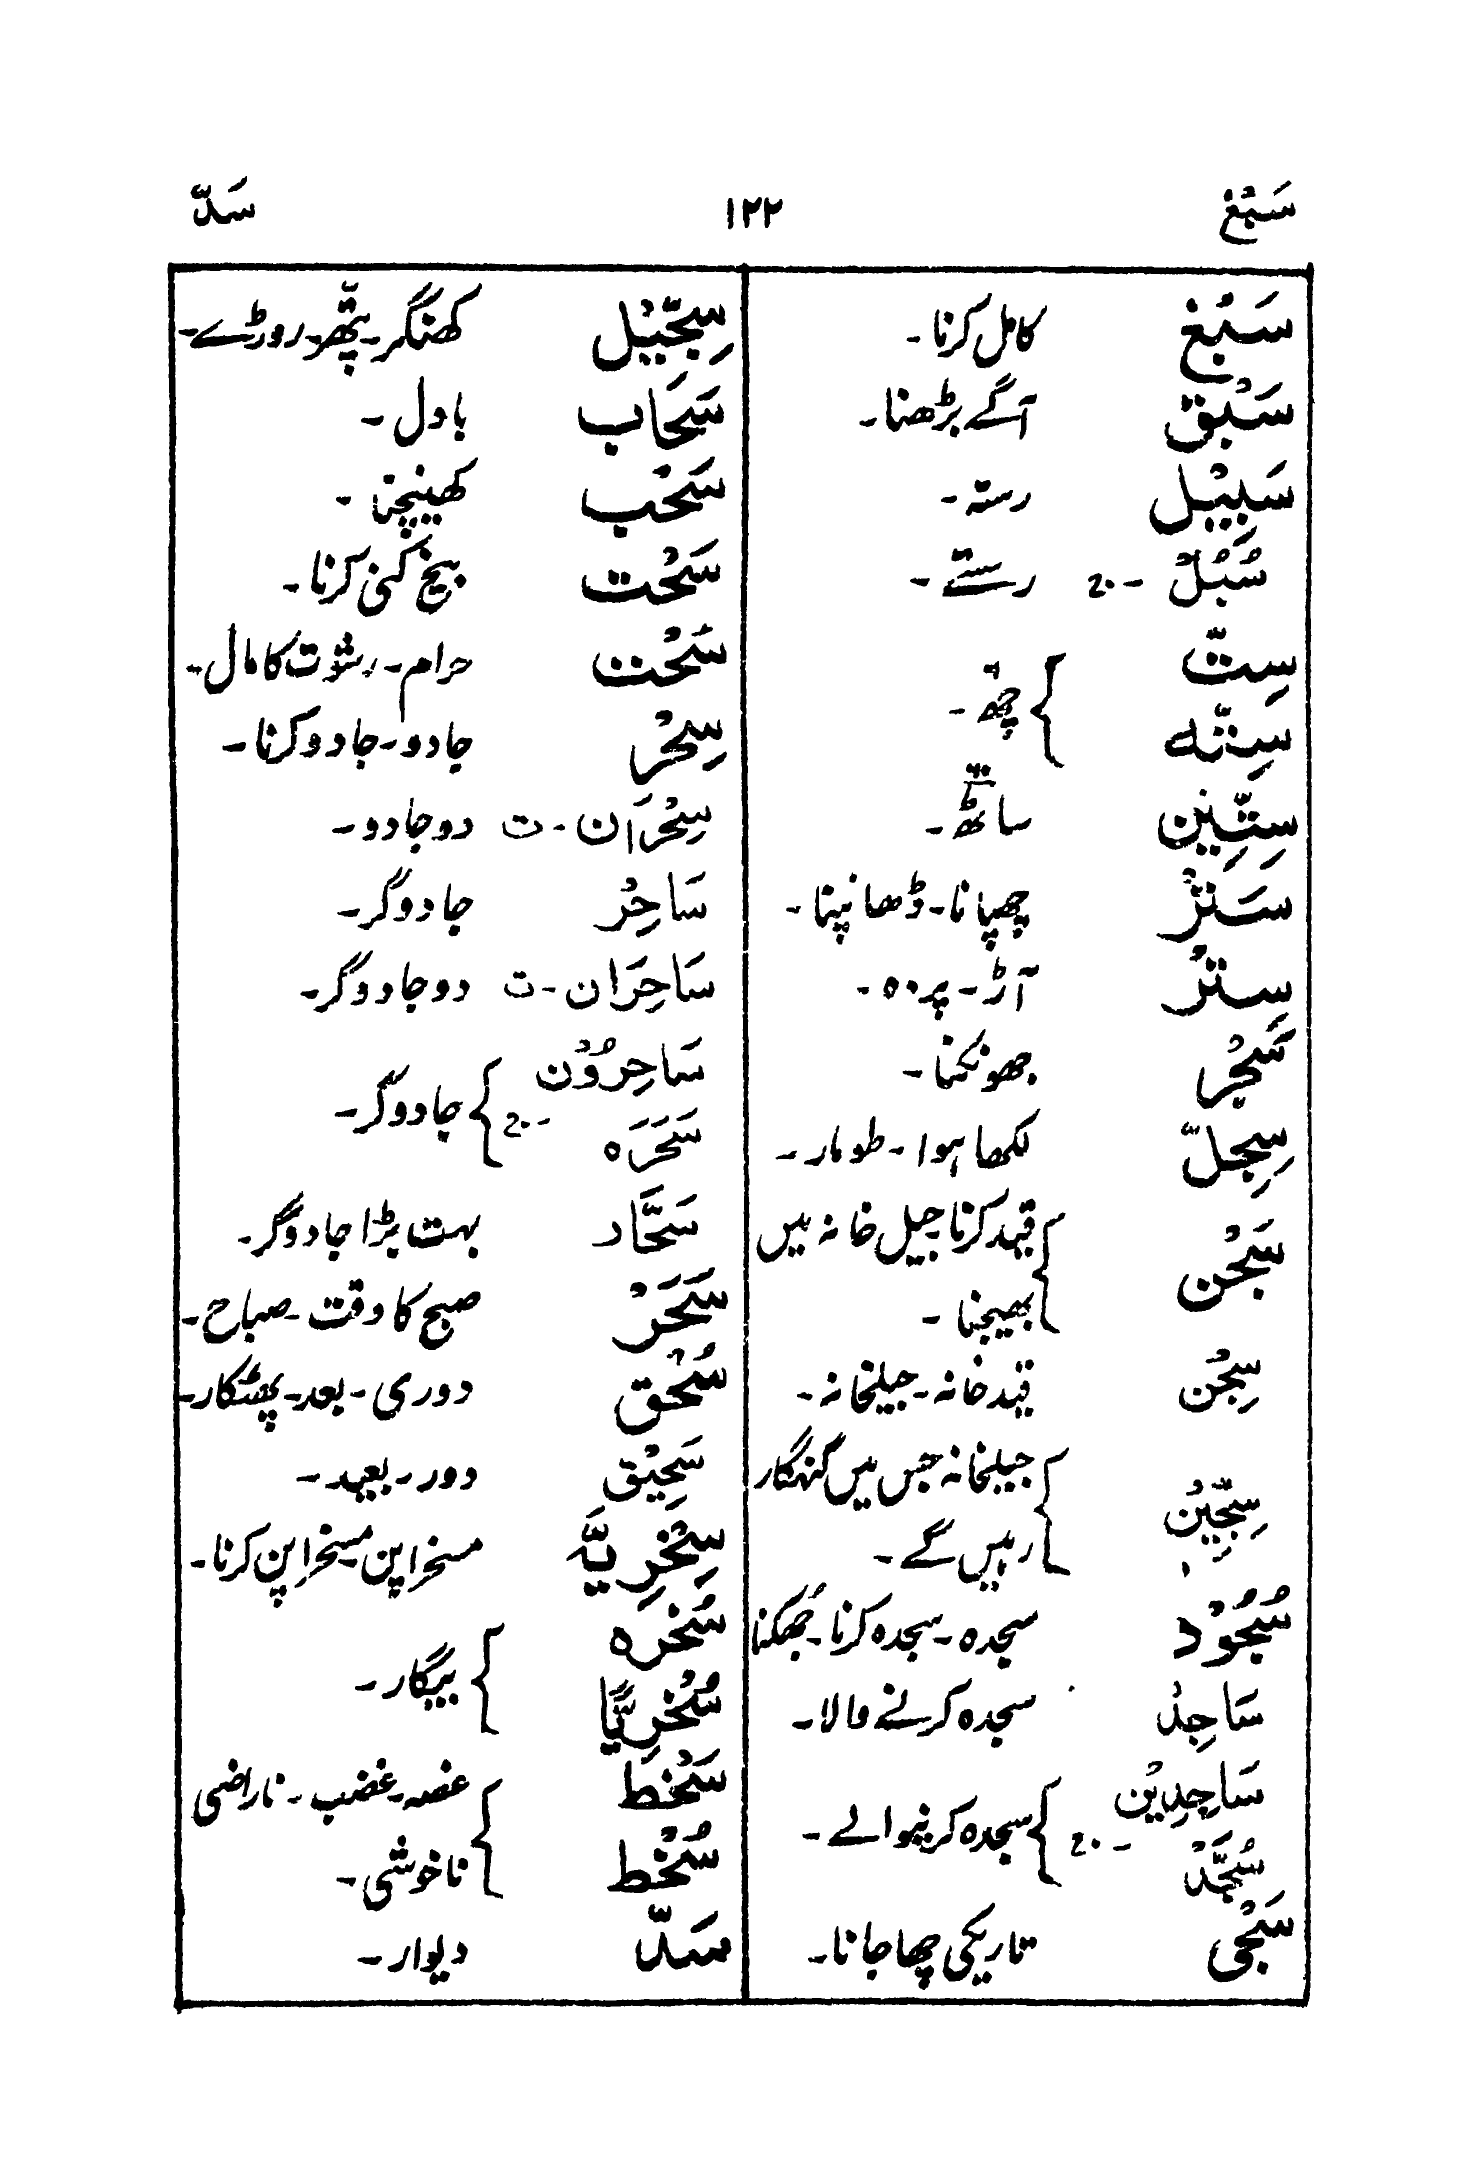 سَبْغ ۱۲۲ سَدّ
سَبْغ کامل کرنا۔
سَبْق آگے بڑھنا۔
سَبِيْل رستہ۔
سُبُلٌ ۔ ج رستے۔
سِتّ
سِتَّه } چھ۔
سِتِّيْن ساٹھ۔
سَتْرٌ چھپانا۔ ڈھانپنا۔
سِتْرٌ آڑ۔ پردہ۔
سَجْر جھونکنا۔
سِجِلّ لکھا ہوا۔ طومار۔
سَجْن } قید کرنا جیل خانہ میں
بھیجنا۔
سِجْن قید خانہ۔ جیلخانہ۔
سِجِّيْن } جیلخانہ جس میں گنہگار
رہیں گے۔
سُجُوْد سجدہ۔ سجدہ کرنا۔ جُھکنا
سَاجِدٌ سجدہ کرنے والا۔
سَاجِدِيْن
سُجَّدٌ ۔ ج } سجدہ کرنیوالے۔
سَجْی تاریکی چھا جانا۔
سِجِّيْل کھنگر۔ پتّھر۔ روڑے۔
سَحَاب بادل۔
سَحْب کھینچنا۔
سَحْت بیخ کنی کرنا۔
سُحْت حرام۔ رشوت کا مال۔
سِحْر جادو۔ جادو کرنا۔
سِحْرَان ۔ ت دو جادو۔
سَاحِرٌ جادوگر۔
سَاحِرَان ۔ ت دو جادوگر۔
سَاحِرُوْن
سَحَرَه ۔ ج } جادوگر۔
سَحَّار بہت بڑا جادوگر۔
سَحَرْ صبح کا وقت۔ صباح۔
سُحْق دوری۔ بعد۔ پھٹکار۔
سَحِيْق دور۔ بعید۔
سِخْرِيَّه مسخراپن۔ مسخراپن کرنا۔
سُخْرَه
سُخْرِيًّا } بیگار۔
سَخَط } غصہ۔ غضب۔ ناراضی
سُخْط ناخوشی۔
سَدّ دیوار۔